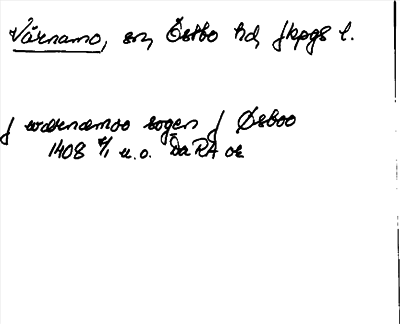 Värnamo, sn, Östbo hd, Jkpgs l.
J wærnamoo sogen J Øsboo
1408 4/1 u.o. DaRA or